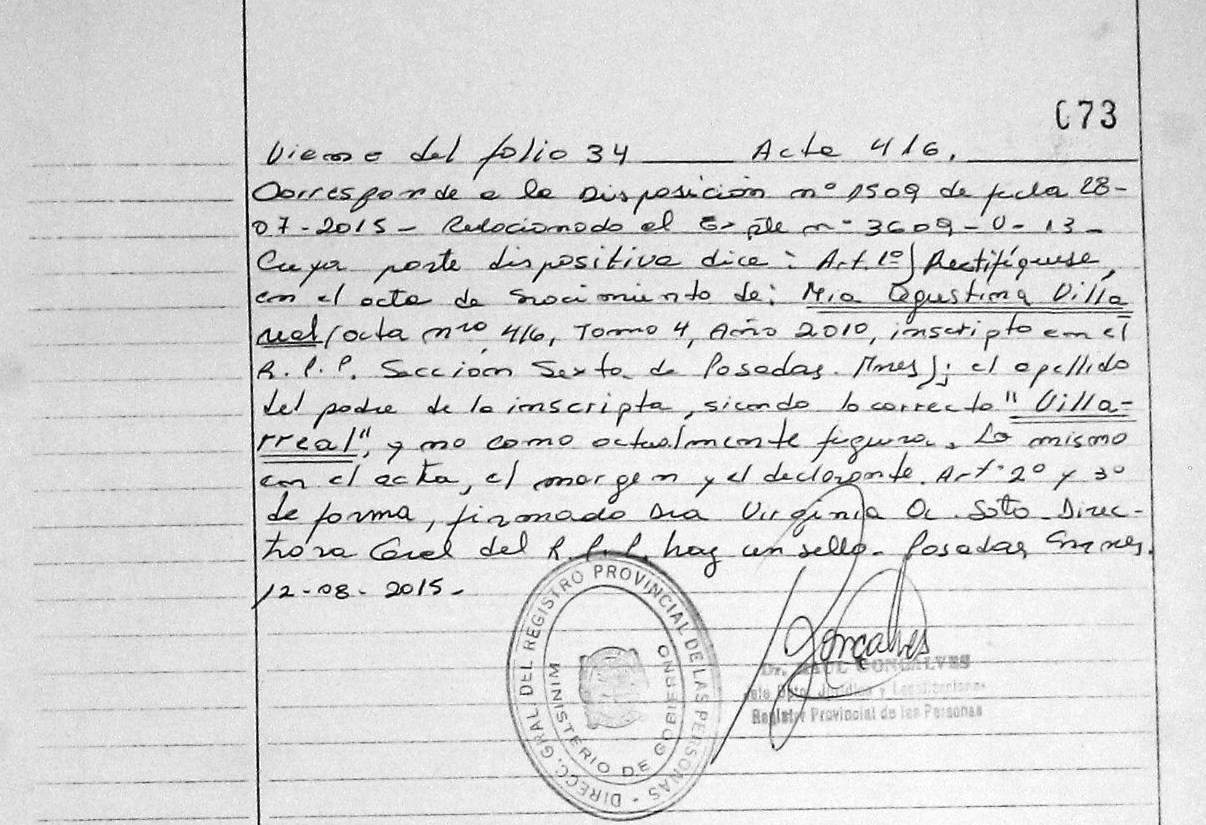 073
Viene del folio 34 ____ Acta 416. ____
Corresponde a la Disposición nº 1509 de fecha 28-
07-2015- Relacionado al Expte nº 3609-V-13-
Cuya parte dispositiva dice: Art. 1º) Rectifíquese,
en el acta de nacimiento de: Mia Agustina Villa
rreal (acta nro 416, Tomo 4, Año 2010, inscripto en el
R.P.P. Sección Sexta de Posadas. Mnes); el apellido
del padre de la inscripta, siendo lo correcto "Villa-
rreal", y no como actualmente figura. Lo mismo
en el acta, el margen y el declarante. Art. 2º y 3º
de forma, firmado Dra Virginia A. Soto Direc-
tora Gral del R.P.P. hay un sello- Posadas Mnes.
12-08-2015-
DIRECC. GRAL DEL REGISTRO PROVINCIAL DE LAS PERSONAS -
MINISTERIO DE GOBIERNO
Goncalves
Dr. RAUL GONCALVES
Dpto. Jurídico y Legalizaciones
Registro Provincial de las Personas